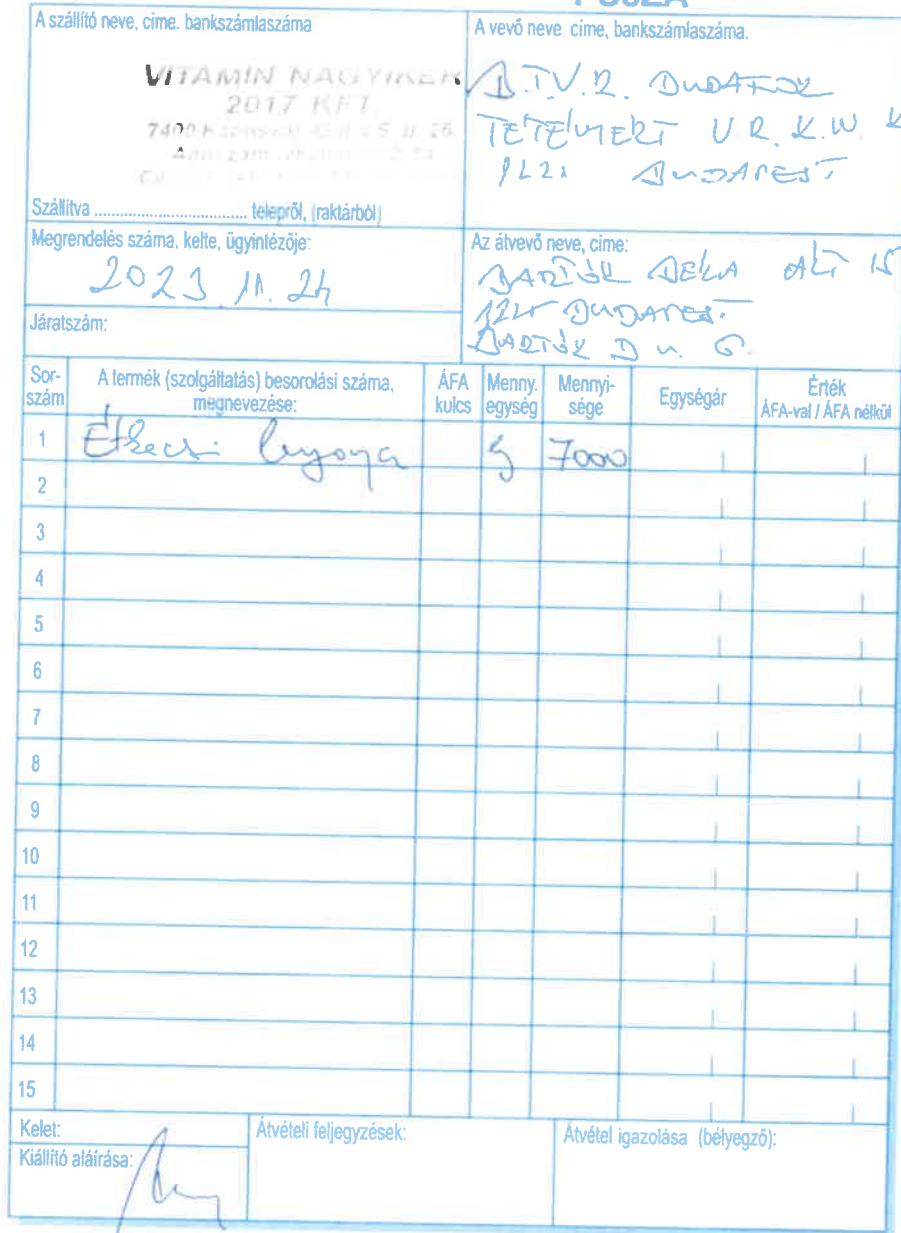 A szállító neve, címe. bankszámlaszáma
VITAMIN NAGYKER
2017 KFT.
Szállítva telepről, (raktárból)
A vevő neve, címe, bankszámlaszáma.
B.T.V.R. BUDAFOK
TÉTÉNYÉRT
BUDAPEST
Megrendelés száma, kelte, ügyintézője:
2023 11. 24
Járatszám:
Az átvevő neve, címe:
BARTÓK BÉLA ÁLT
BUDAPEST.
BARTÓK B u. 6.
Sor-
szám
A termék (szolgáltatás) besorolási száma,
megnevezése:
ÁFA
kulcs
Menny.
egység
Mennyi-
sége
Egységár
Érték
ÁFA-val / ÁFA nélkül
1 Étkezési burgonya 7000
2
3
4
5
6
7
8
9
10
11
12
13
14
15
Kelet:
Kiállító aláírása:
Átvételi feljegyzések:
Átvétel igazolása (bélyegző):